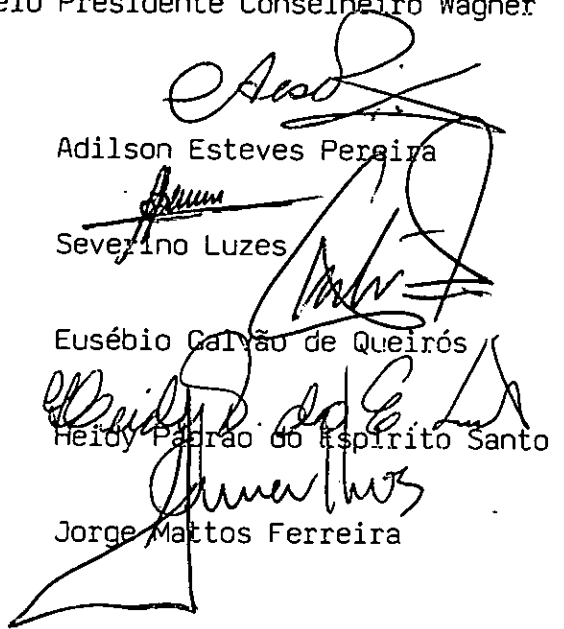 elo Presidente Conselheiro Wagner
Adilson Esteves Pereira
Severino Luzes
Eusébio Galvão de Queirós
Heidy D. do E. Santo
Heidy Padrão do Espírito Santo
Jorge Mattos Ferreira